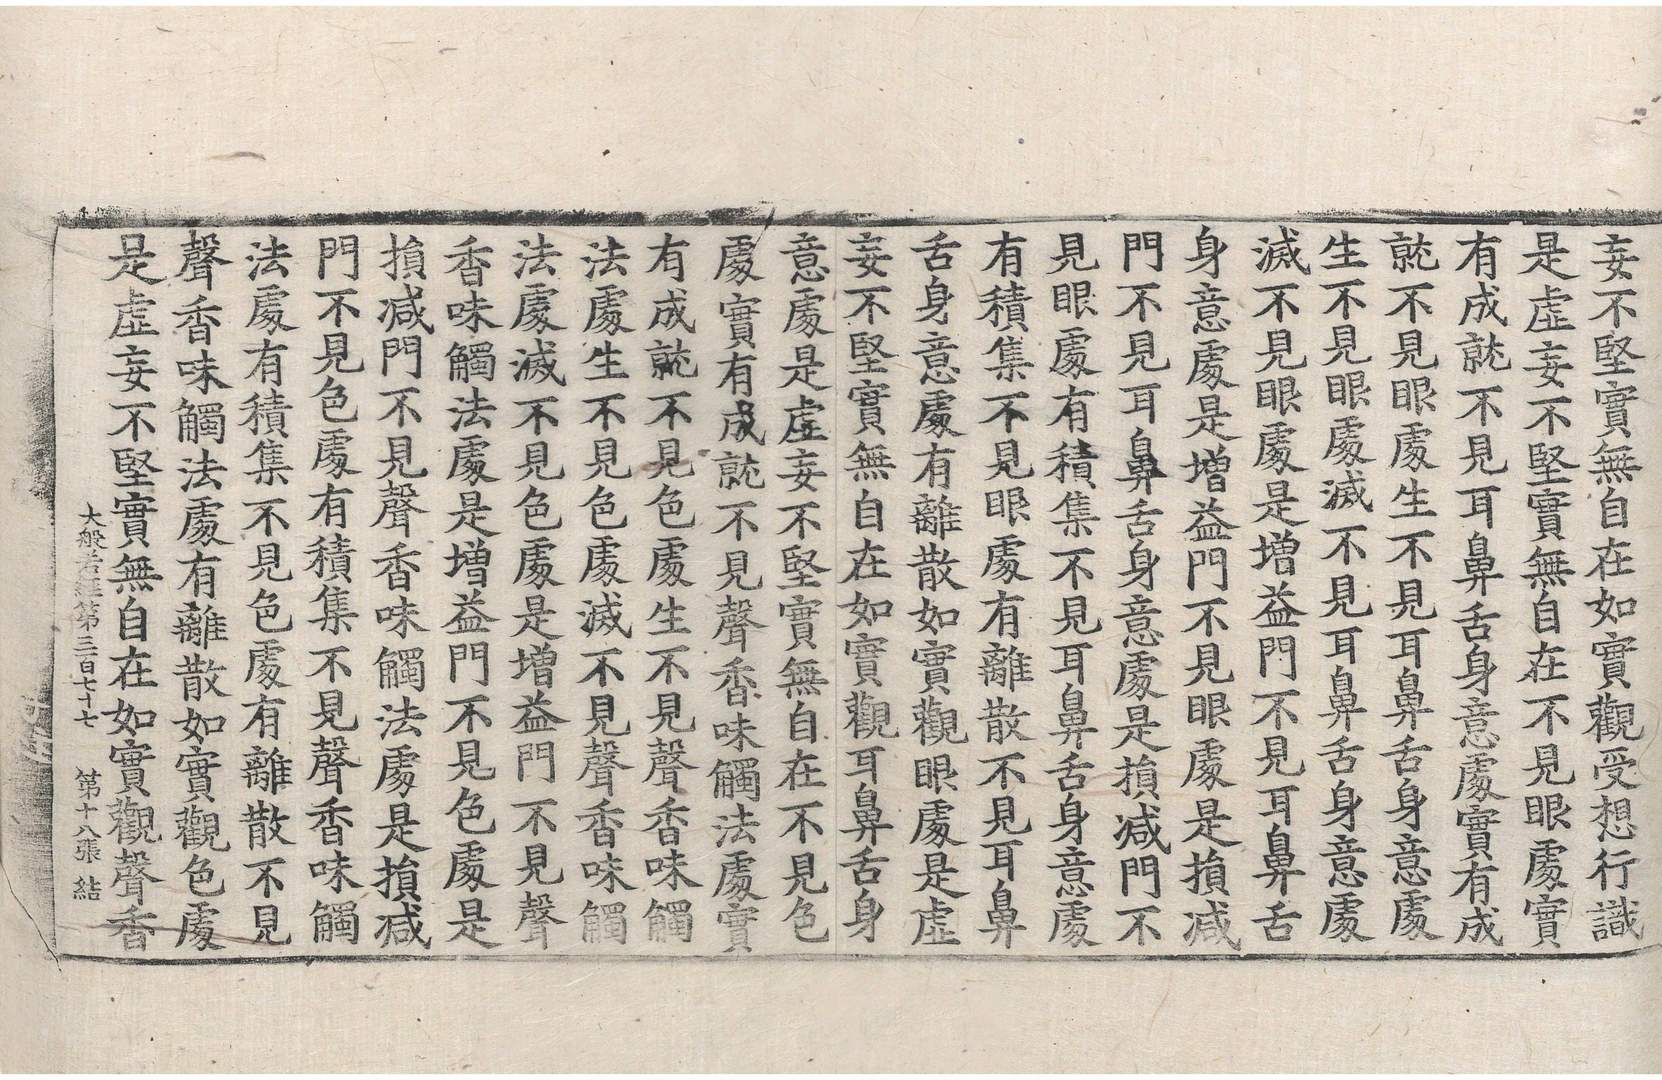 妄不堅實無自在如實觀受想行識
是虛妄不堅實無自在不見眼處實
有成就不見耳鼻舌身意處實有成
就不見眼處生不見耳鼻舌身意處
生不見眼處滅不見耳鼻舌身意處
滅不見眼處是增益門不見耳鼻舌
身意處是增益門不見眼處是損減
門不見耳鼻舌身意處是損減門不
見眼處有積集不見耳鼻舌身意處
有積集不見眼處有離散不見耳鼻
舌身意處有離散如實觀眼處是虛
妄不堅實無自在如實觀耳鼻舌身
意處是虛妄不堅實無自在不見色
處實有成就不見聲香味觸法處實
有成就不見色處生不見聲香味觸
法處生不見色處滅不見聲香味觸
法處滅不見色處是增益門不見聲
香味觸法處是增益門不見色處是
損減門不見聲香味觸法處是損減
門不見色處有積集不見聲香味觸
法處有積集不見色處有離散不見
聲香味觸法處有離散如實觀色處
是虛妄不堅實無自在如實觀聲香
大般若經第三百七十七 第十八張 結